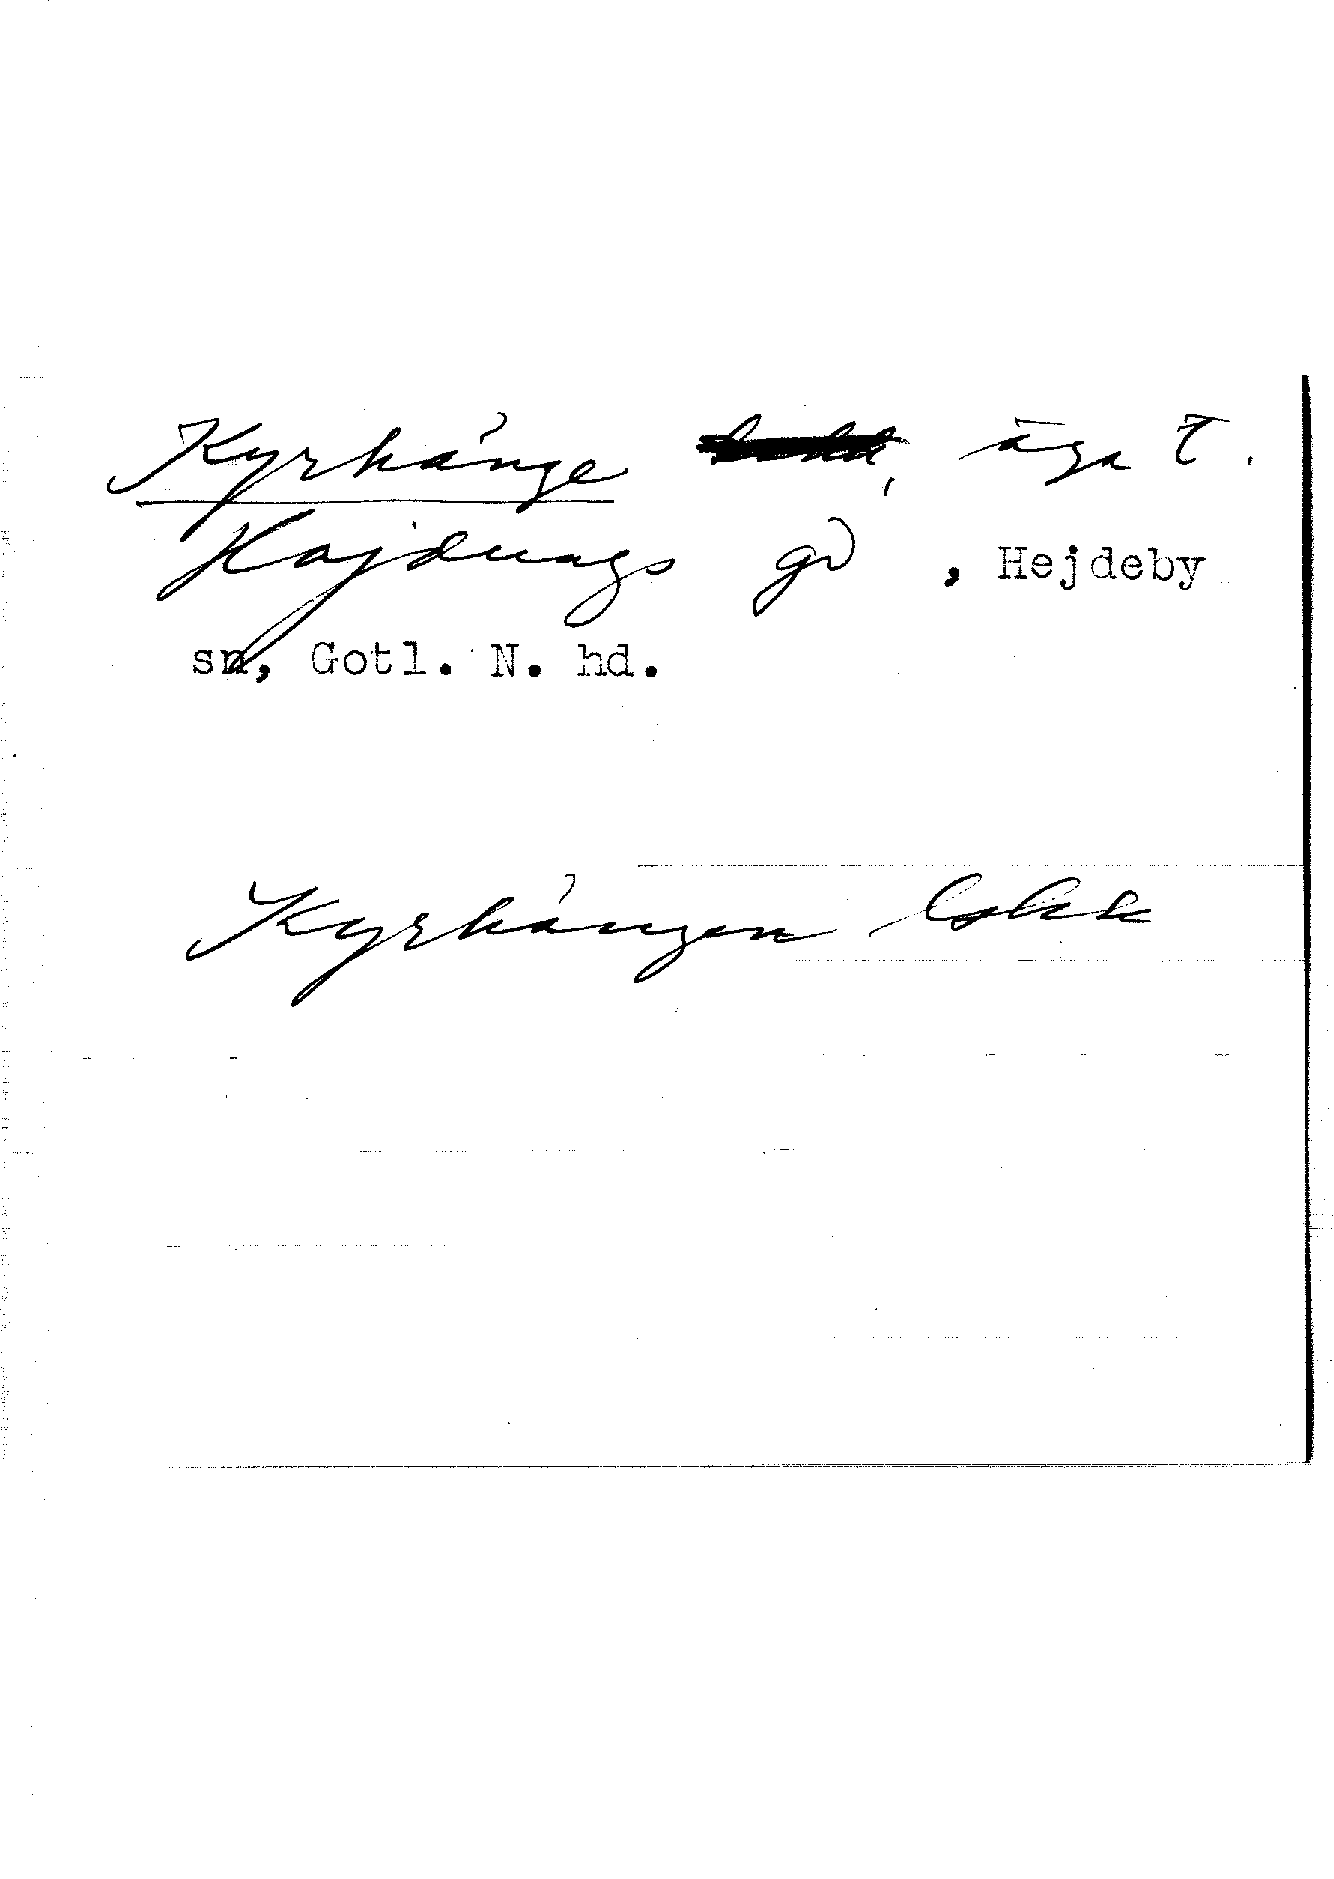 Kyrhånge , äga t.
Hajdungs gd , Hejdeby
sn, Gotl. N. hd.
Kyrhången